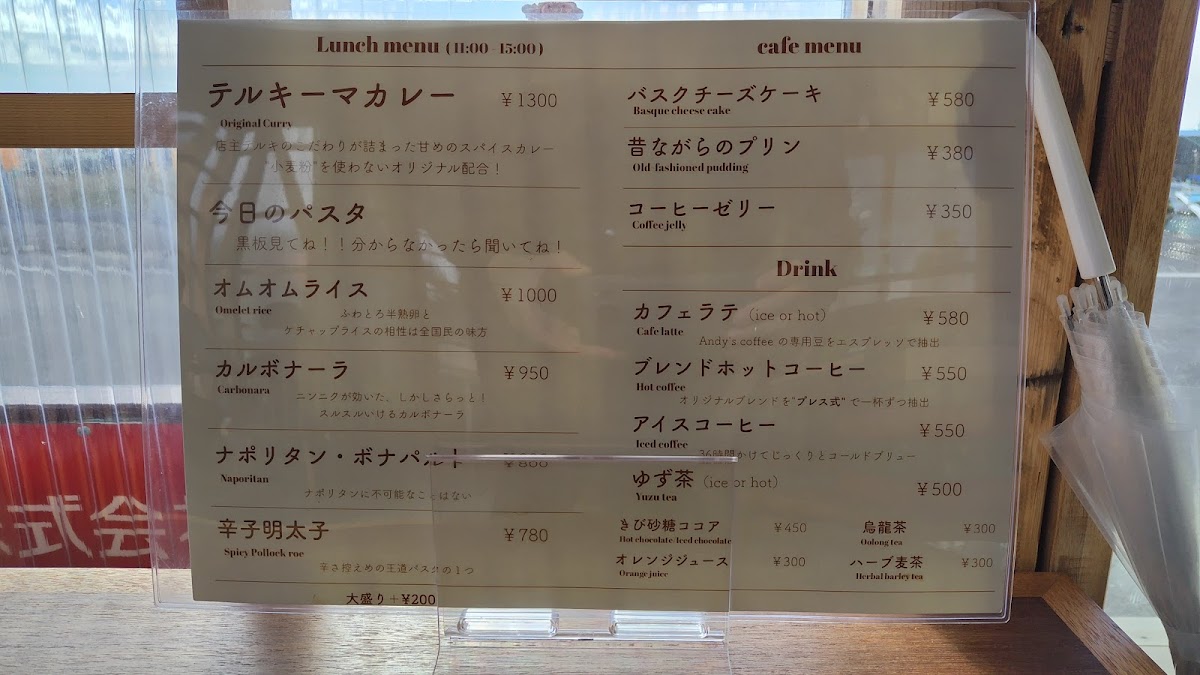 Lunch menu (11:00 - 15:00)
テルキーマカレー ¥1300
Original Curry
店主テルキのこだわりが詰まった甘めのスパイスカレー
"小麦粉"を使わないオリジナル配合！
今日のパスタ
黒板見てね！！分からなかったら聞いてね！
オムオムライス ¥1000
Omelet rice
ふわとろ半熟卵と
ケチャップライスの相性は全国民の味方
カルボナーラ ¥950
Carbonara
ニンニクが効いた、しかしさらっと！
スルスルいけるカルボナーラ
ナポリタン・ボナパルト ¥800
Naporitan
ナポリタンに不可能なことはない
辛子明太子 ¥780
Spicy Pollock roe
辛さ控えめの王道パスタの1つ
大盛り＋¥200
cafe menu
バスクチーズケーキ ¥580
Basque cheese cake
昔ながらのプリン ¥380
Old-fashioned pudding
コーヒーゼリー ¥350
Coffee jelly
Drink
カフェラテ (ice or hot) ¥580
Cafe latte
Andy's coffee の専用豆をエスプレッソで抽出
ブレンドホットコーヒー ¥550
Hot coffee
オリジナルブレンドを"プレス式" で一杯ずつ抽出
アイスコーヒー ¥550
Iced coffee
36時間かけてじっくりとコールドブリュー
ゆず茶 (ice or hot) ¥500
Yuzu tea
きび砂糖ココア ¥450 烏龍茶 ¥300
Hot chocolate/Iced chocolate Oolong tea
オレンジジュース ¥300 ハーブ麦茶 ¥300
Orange juice Herbal barley tea